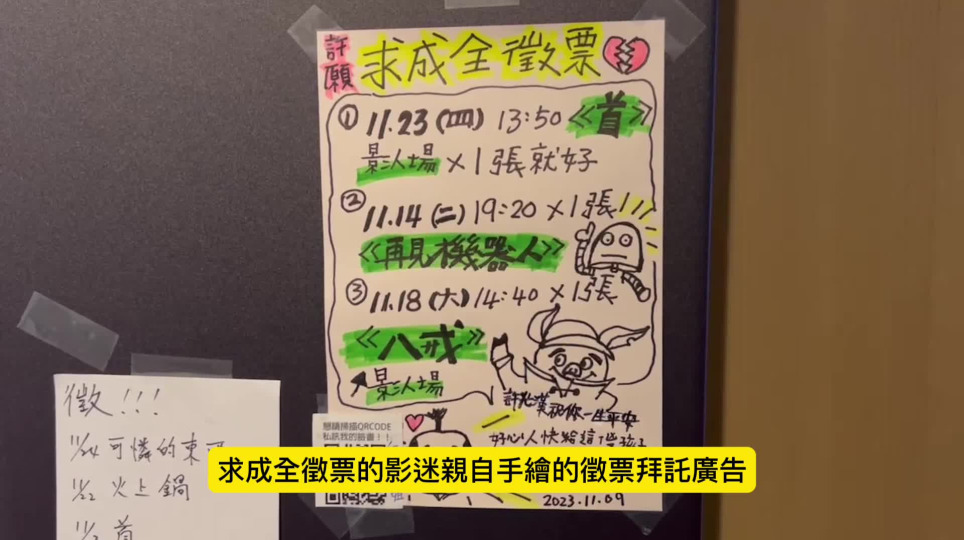 許願
求成全徵票
① 11.23 (四) 13:50 《首》
影人場 × 1 張就好
② 11.14 (二) 19:20 × 1 張!!!
《再見機器人》
③ 11.18 (六) 14:40 × 1 張
《八戒》
影人場
許光漢祝你一生平安
好心人快給這個孩子
2023.11.09
懇請掃描QRCODE
私訊我的臉書!!
徵!!!
11/24 可憐的東西
11/22 火上鍋
首
求成全徵票的影迷親自手繪的徵票拜託廣告